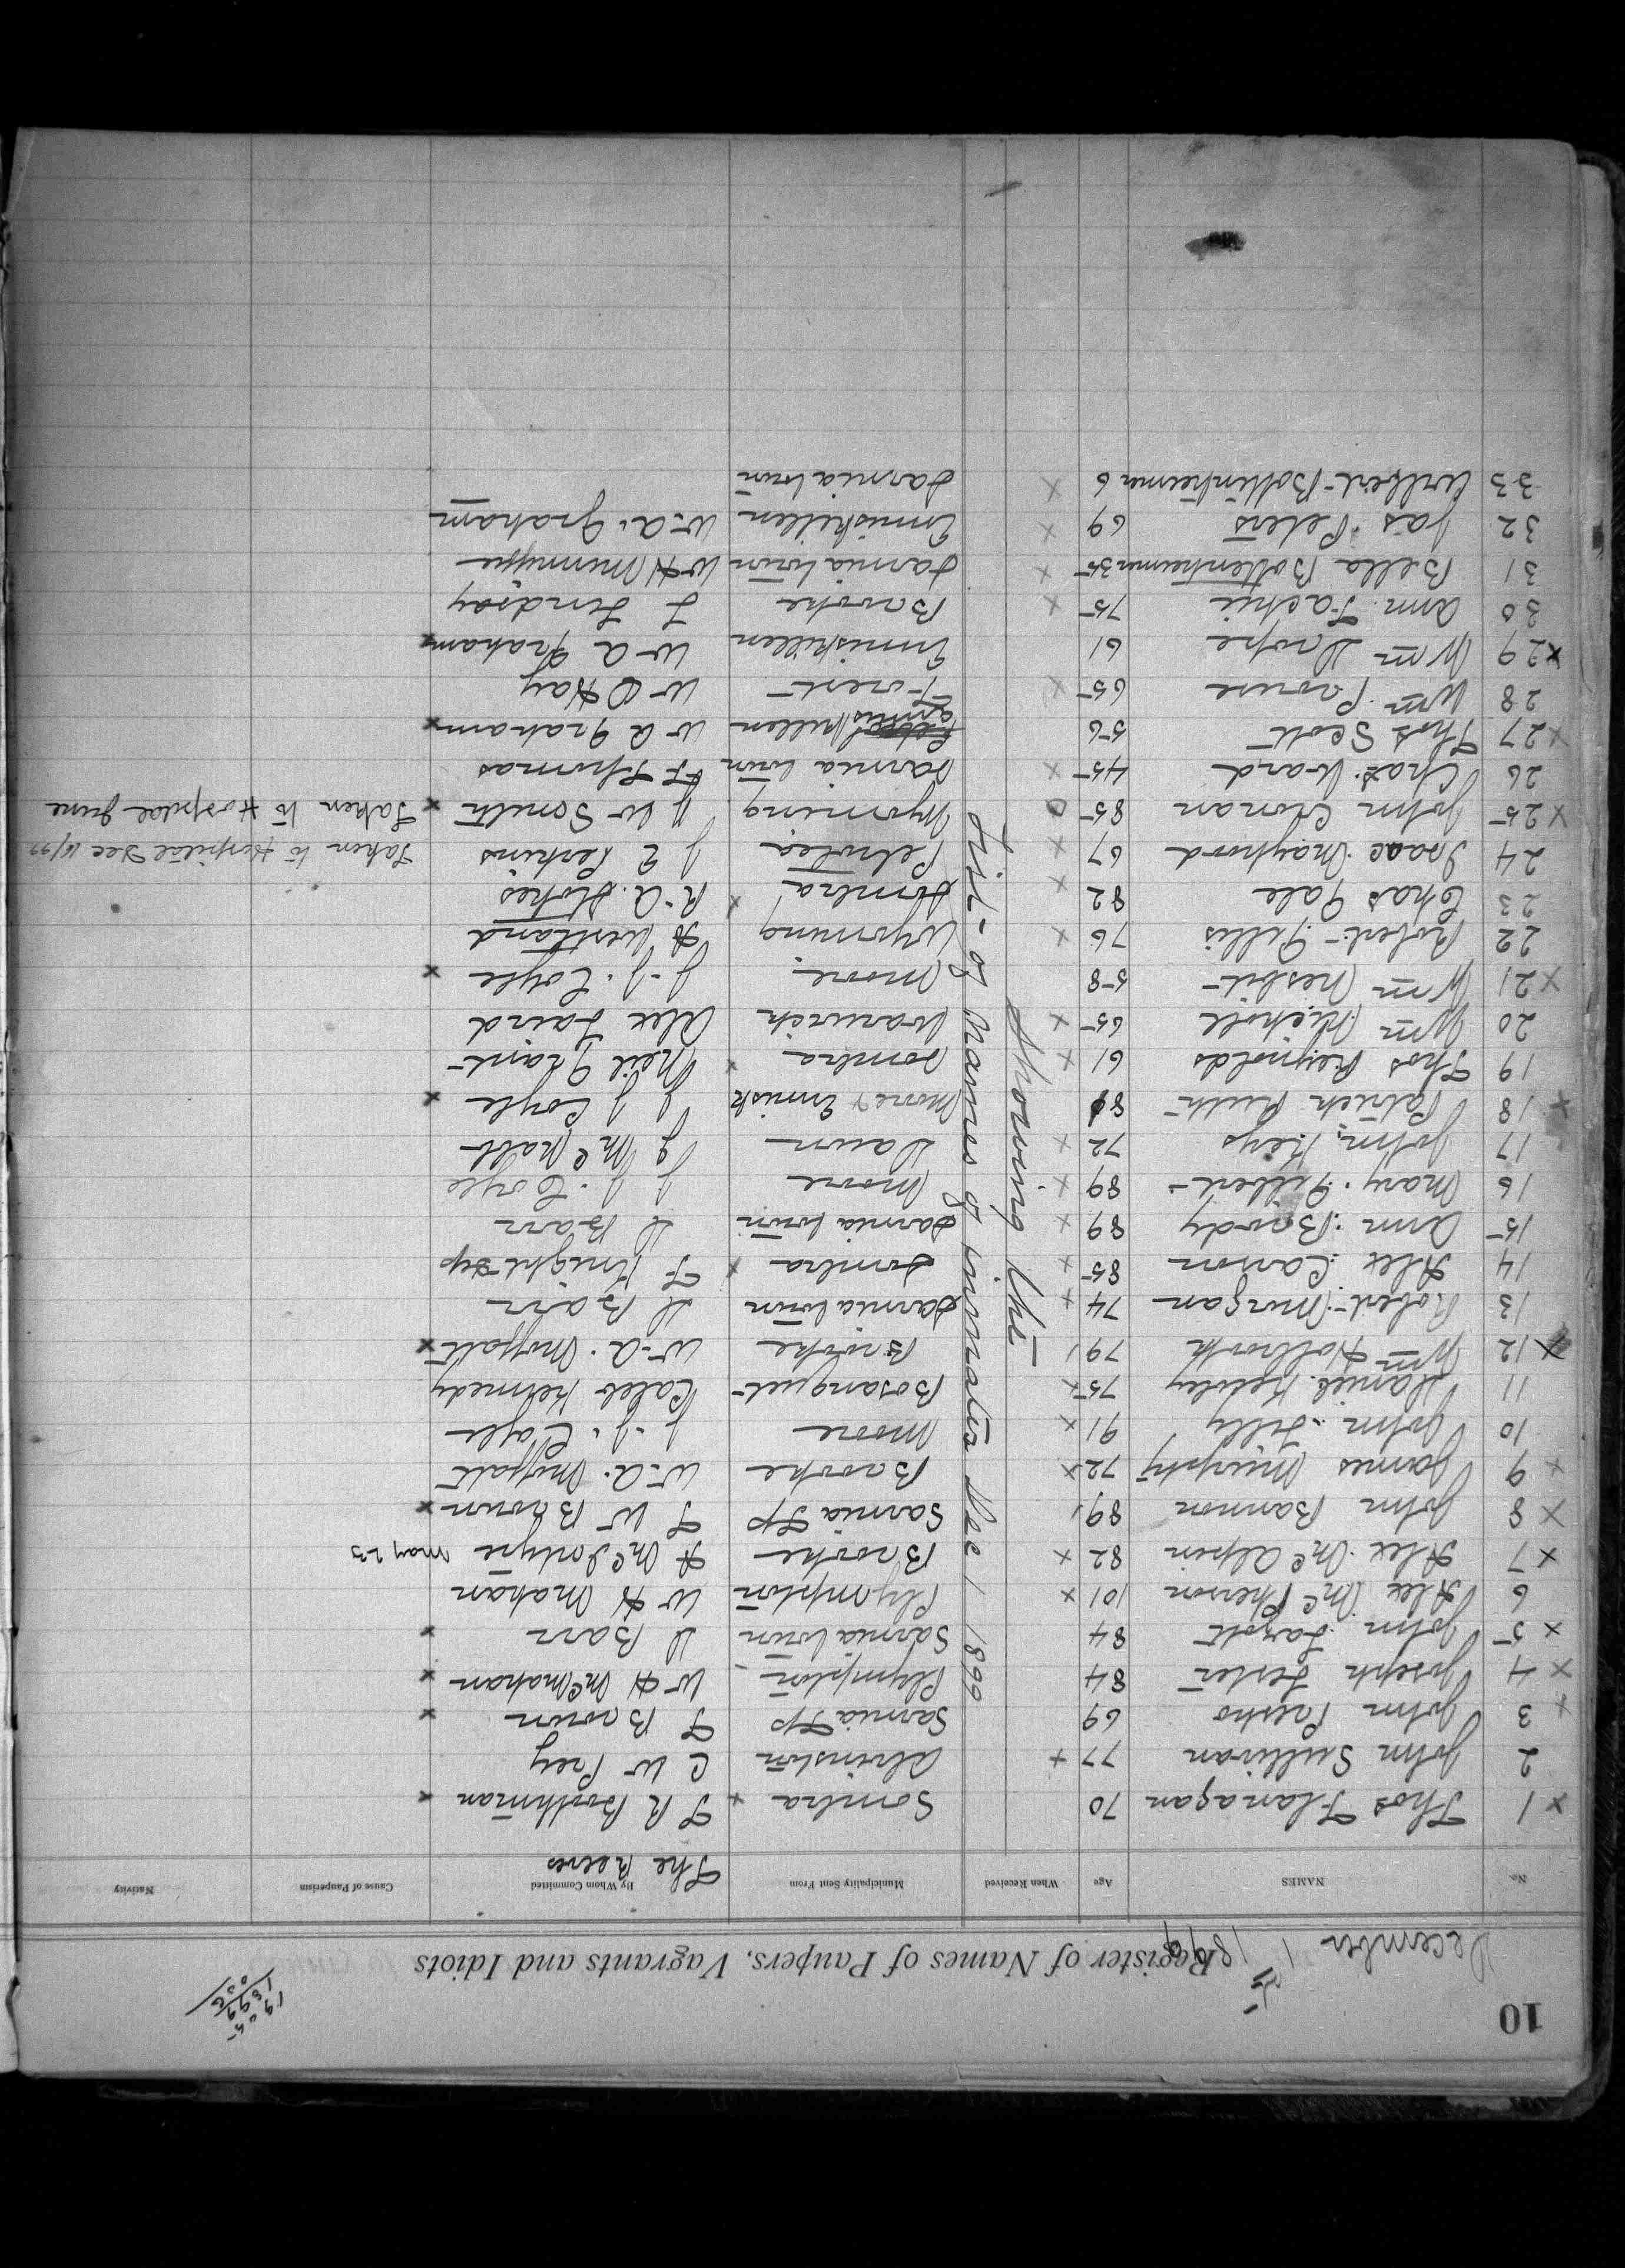 10
1905
1899
6
December 1st 1899
Register of Names of Paupers, Vagrants and Idiots
No. NAMES Age When Received Municipality Sent From By Whom Committed Cause of Pauperism Nativity
The Reeves
Showing the
List of Names of inmates Dec 1 1899
x 1 Thos Flanagan 70 Sombra + T R Boothman x
2 John Sullivan 77 + Alvinston C W Frey
+ 3 John 69 Sarnia Tp T Brown x
x 4 Joseph Lester 84 Plympton W H McMahan x
x 5 John 84 Sarnia town D Barr x
6 Alex McPherson 101 x Plympton W H Mahan
x 7 Alex McAlpin 82 x Brooke A McIntyre May 23
x 8 John Bannon 89 Sarnia Tp T W Brown x
+ 9 James Murphy 72 x Brooke W. A. Moffatt
10 John Lilly 91 x Moore J. J. Coyle
11 Daniel Kelley 75 x Bosanquet Caleb Kennedy
x 12 Wm Holbrook 79 Brooke W. A. Moffatt x
13 Robert Morgan 74 + Sarnia town D Barr
14 Alex Carson 85 + Sombra x F Knight Dep
15 Ann Brody 89 + Sarnia town D Barr
16 Mary Gilbert 89 x Moore J J. Coyle
17 John Keys 72 x Dawn J McNabb
+ 18 Patrick 81 Moore & Ennisk J J Coyle x
19 Thos Reynolds 61 + Sombra x Neil Grant
20 Wm Nicholl 65 + Warwick Alex Laird
x 21 Wm Nesbit 58 Moore J. J. Coyle x
22 Robert Gillis 76 x Wyoming A Westland
23 Chas Gale 82 x Sombra x R. A. Stokes
24 Isaac Maynord 67 x Petrolea J E Perkins Taken to Hospital Dec
x 25 John Cronan 85 o Wyoming J W Smith x Taken to Hospital June
26 Chas. Ward 45 x Sarnia town F F Thomas
x 27 Thos Scott 56 Enniskillen W A Graham x
28 Wm Prouse 65 x Forest W D Hay
x 29 Wm Droke 61 Enniskillen W A Graham x
30 Ann Fackie 75 x Brooke T Lindsay
31 Bella Bottenheimer 35 x Sarnia town W H Minnynne
32 Jas Peters 69 x Enniskillen W. A. Graham
33 Wilbert Bottenheimer 6 x Sarnia town